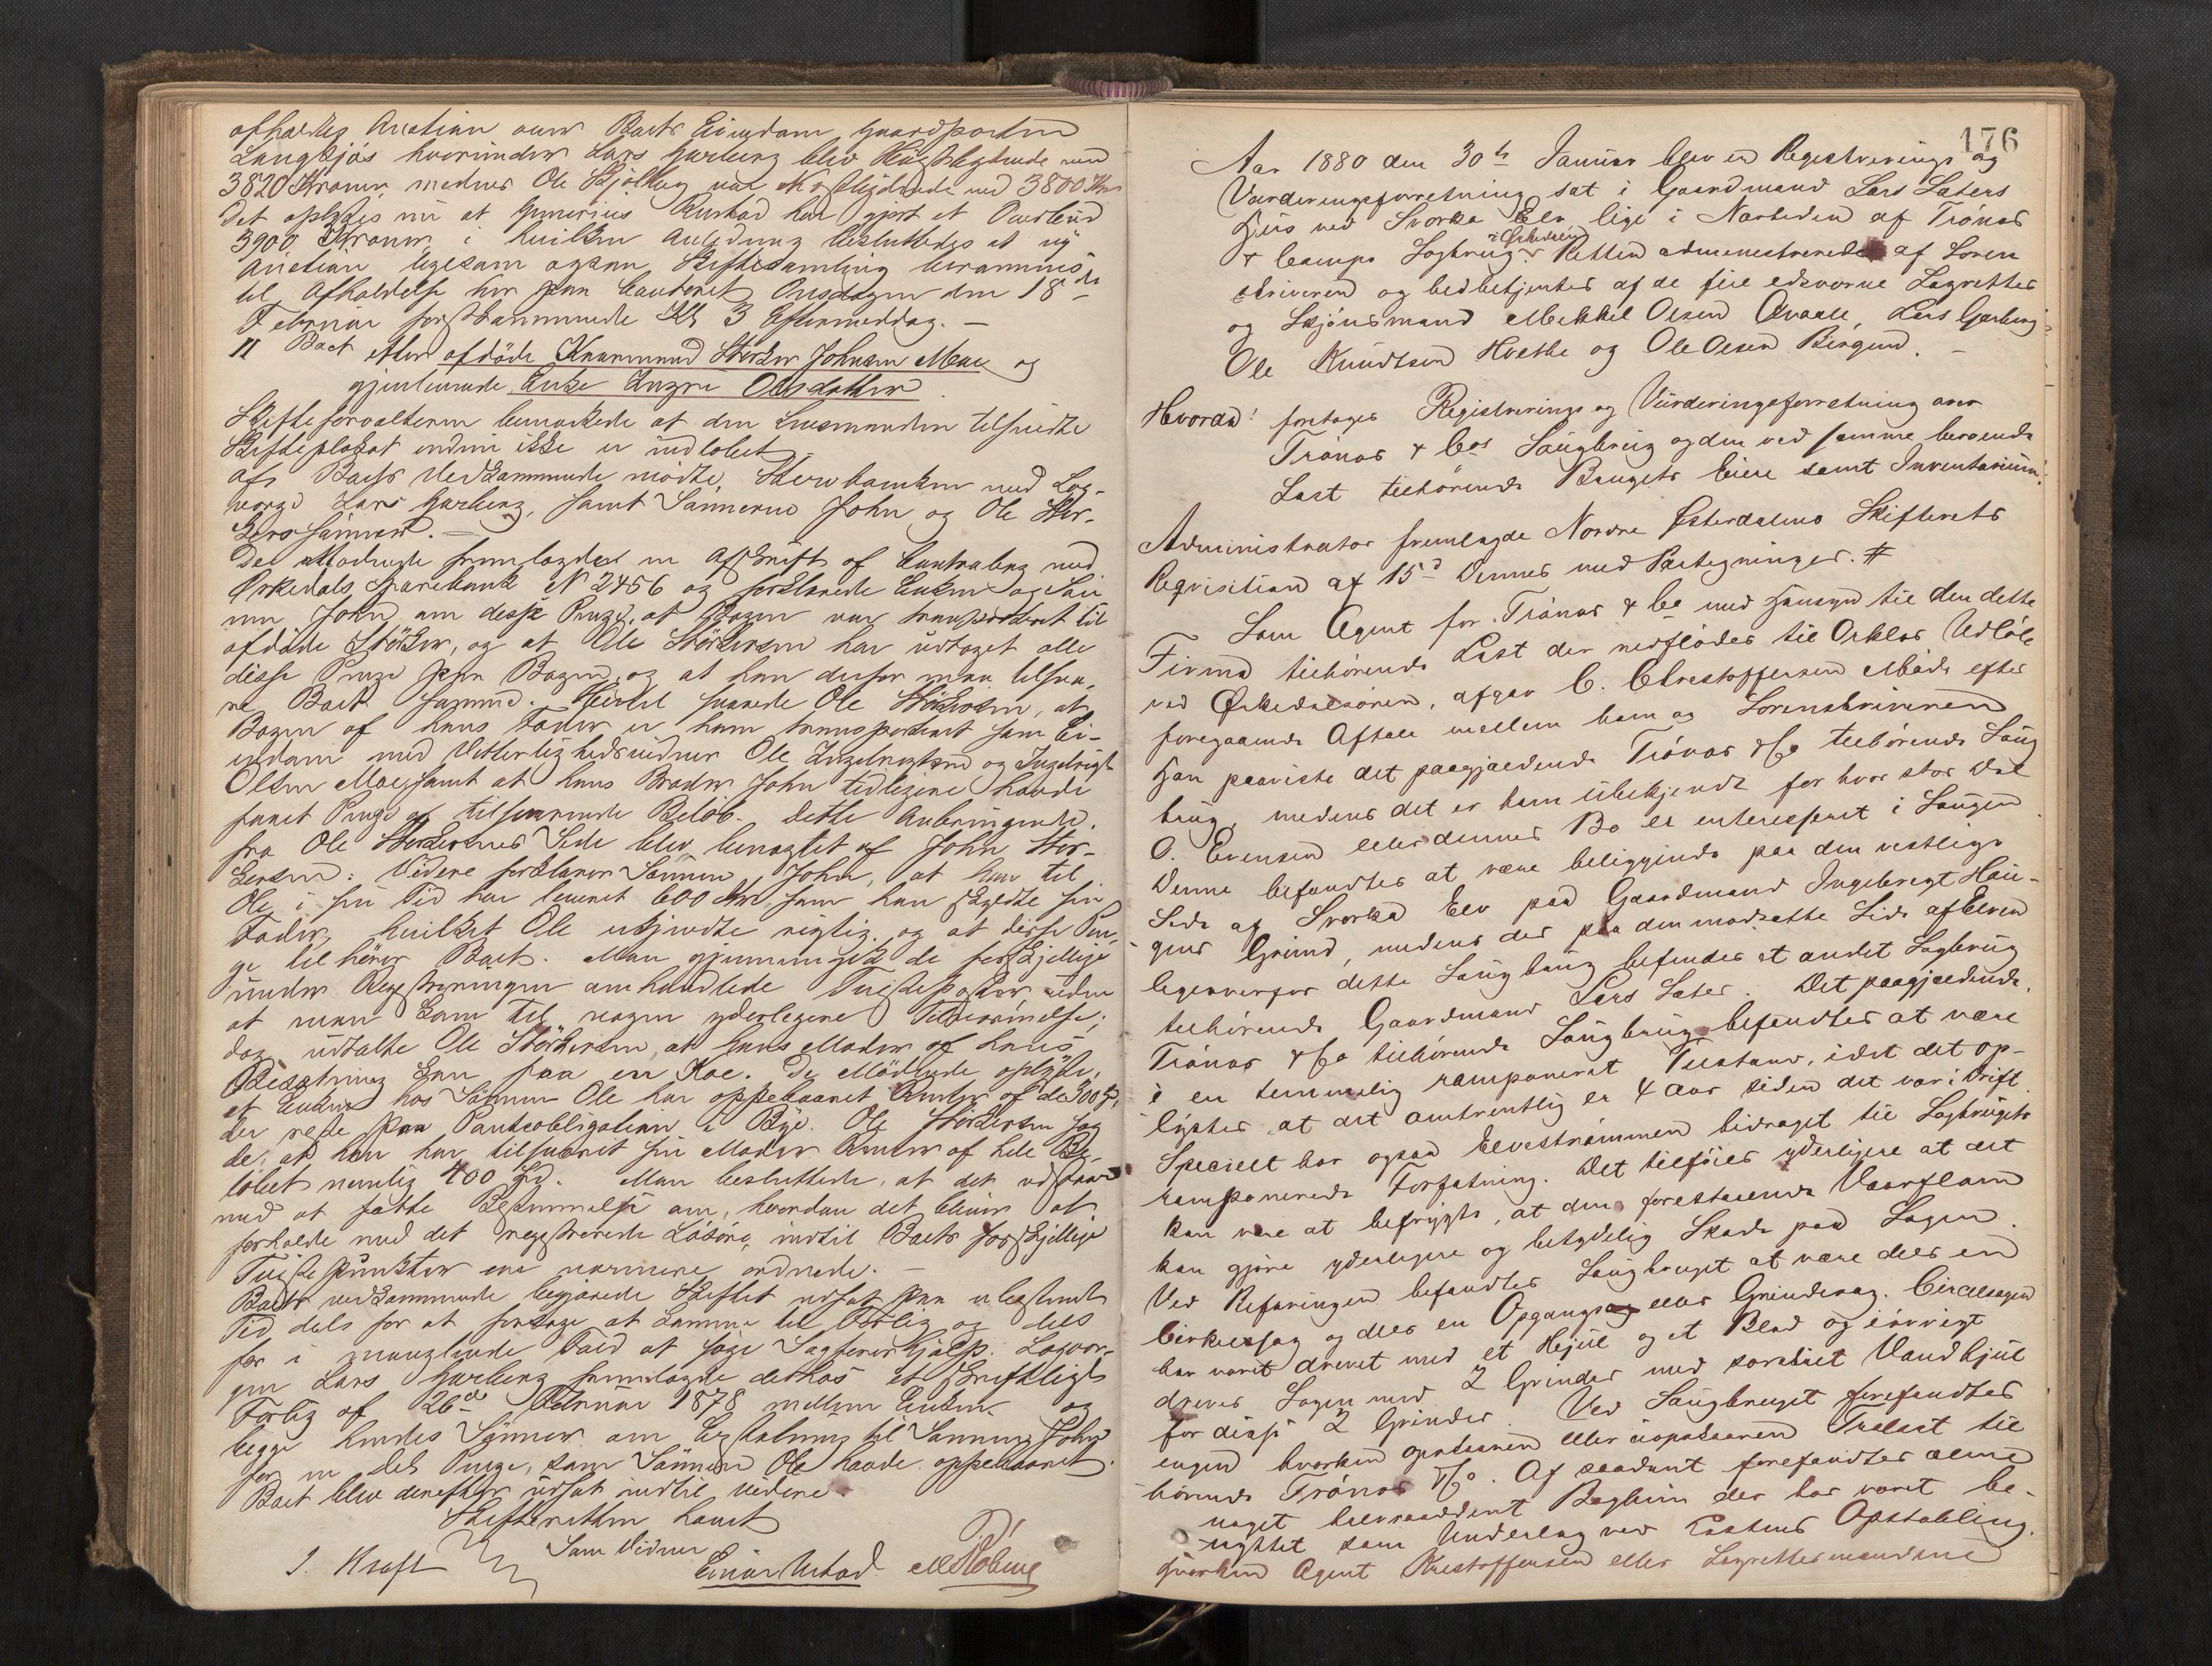 afholdtes Auction over Boets Eiendom Gaardparten
Langkjøs hvorunder Lars Garberg blev Høistbydende med
3820 Kroner, medens Ole Kjølberg var Næstbydende med 3800 Kr
Det oplystes nu at Gunerius Rustad har gjort et Overbud
3900 Kroner, i hvilken Anledning besluttedes at ny
Auction ligesom ogsaa Skiftesamling berammes
til Afholdelse her paa Contoret Onsdagen den 18de
Februar førstkommende Kl 3 Eftermiddag. —
11 Boet efter afdøde Kaarmand Størker Johnsen Moe og
gjenlevende Enke Ingri Olsdatter
Skifteforvalteren bemærkede at den Lensmanden tilsendte
Skifteplakat endnu ikke er indløbet.
Af Boets Vedkommende mødte, Stervboenken med Lag-
værge Lars Garberg, samt Sønnerne John og Ole Stør-
kersønner. —
De Mødende fremlagdes en Afskrift af Contrabog med
Orkedals Sparebank No 2456 og forklarede Enken og Søn-
nen John om disse Penge, at Bogen var transporteret til
afdøde Størker, og at Ole Størkersen har udtaget alle
disse Penge paa Bogen, og at han derfor maa tilsva-
re Boet samme. Hertil svarede Ole Størkersen, at
Bogen af hans Fader er ham transporteret som Ei-
endom med Vitterlighedsvidner Ole Ingebrigtsen og Ingebrigt
Olsen Moe, samt at hans Broder John tidligere havde
faaet Penge af tilsvarende Beløb. Dette Anbringende
fra Ole Størkersens Side blev benægtet af John Stør-
kersen: Videre forklarer Sønnen John, at han til
Ole i sin Tid har leveret 600 Kr, som han skyldte sin
Fader, hvilket Ole erkjendte rigtig, og at disse Pen-
ge tilhører Boet. Man gjennemgik de forskjellige
under Registreringen omhandlede Tvistepøster, uden
at man kom til nogen yderligere Tilnærmelse;
dog udtalte Ole Størkersen, at hans Moder af hans
Besætning kan faa en Koe. De Mødende oplyste,
at Enken hos Sønnen Ole har oppebaaret Renter af de 300 Spd,
der rede paa Pantobligation i Bye. Ole Størkersen sag-
de, at han har tilsvaret sin Moder Renter af hele Be-
løbet nemlig 400 Spd. Man besluttede, at det udstaar
med at fatte Bestemmelse om, hvordan det bliver at
forholde med det registrerede Løsøre, indtil Boets forskjellige
Tvistepunkter ere nærmere ordnede. —
Boets vedkommende begjærede Skiftet udsat paa ubestemt
Tid, dels for at forsøge at komme til Forlig og dels
for i manglende Fald at søge Sagførerhjælp. Lagvær-
gen Lars Garberg fremlagde derhos et skriftligt
Forlig af 26de Februar 1878 mellem Enken og
begge hendes Sønner om Erstatning til Sønnen John
for en Del Penge, som Sønnen Ole havde oppebaaret.
Boet blev derefter udsat indtil videre.
Skifteretten hævet
J. Kraft
Som Vidner
Einar Ustad
176
Aar 1880 den 30te Januar blev en Registrerings og
Vurderingsforretning sat i Gaardmand Lars Saters
Huus ved Svorka Elv lige i Nærheden af Trönæs
& Comps Sagbrug i Orkedalen. Retten administreredes af Soren
skriveren og bedbetjentes af de fire edsvorne Lagrettes
og Skjønsmænd Mekkel Olsen Qvaale, Lars Garberg,
Ole Knudtsen Hvethe og Ole Olsen Bergund. —
Hvorda! foretages Registrerings og Vurderingsforretning over
Trönæs & Cos Saugbrug og den ved samme beroende
Last tilhørende Brugets Eiere samt Inventarium.
Administrator fremlagde Nordre Østerdalens Skifterets
Reqvisition af 15d Dennes med Paategninger. #
Som Agent for Trönæs & Co med Hensyn til den dette
Firma tilhørende Last der nedflødes til Orklas Udløb
ved Orkedalsøren, afgav C. Christoffersen Møde efter
foregaaende Aftale mellem ham og Sorenskriveren
Han paaviste det paagjældende Trönæs & Co tilhørende Saug
brug, medens det er ham übekjendt for hvor stor Del
O. Evensen eller dennes Bo er interesseret i Saugen
Denne befandtes at være beliggende paa den vestlige
Side af Svorka Elv paa Gaardmand Ingebrigt Hau-
gens Grund, medens der paa den modsatte Side af Elven
ligeoverfor dette Saugbrug befindes et andet Sagbrug
tilhørende Gaardmand Lars Sater. Det paagjældende,
Trönæs & Co tilhørende Saugbrug befandtes at være
i en temmelig ramponeret Tilstand, idet det op-
lystes at det omtrentlig er 4 Aar siden det var i Drift.
Specielt har ogsaa Elvestrømmen bidraget til Sagbrugets
ramponerede Forfatning. Det tilføies yderligere at det
kan være at befrygte, at den forestaaende Vaarflom
kan gjøre yderligere og betydelig Skade paa Sagen.
Ved Befaringen befandtes Saugbruget at være dels en
Cirkelsag og dels en Opgangsag eller Grindesag. Cirkelsagen
har været drevet med et Hjul og et Blad og iøvrigt
dreves Sagen med 2 Grinder med særskilt Vandhjul
for disse 2 Grinder. Ved Saugbruget forefandtes
ingen hverken opskaaren eller uopskaaren Trælast til-
hørende Trönæs & Co. Af saadant forefandtes alene
noget halvraaddent Baghun der har været be-
nyttet som Underlag ved Lastens Opstabling.
Hverken Agent Kristoffersen eller Lagrettesmændene